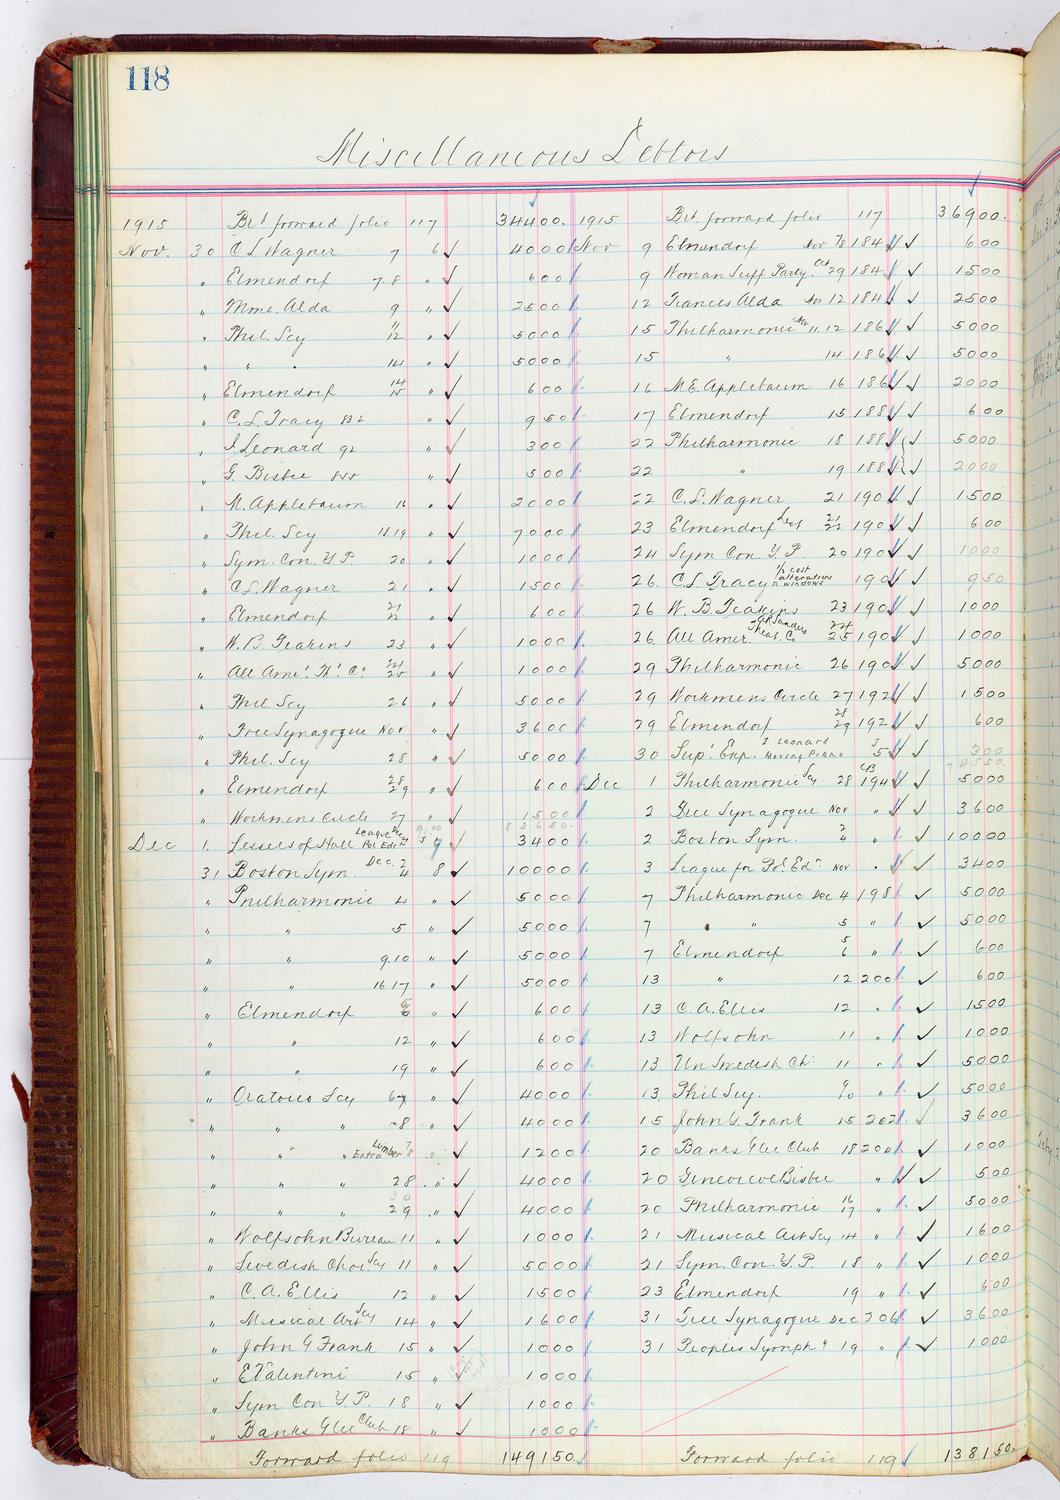 118
Miscellaneous Debtors
1915 Brt forward folio 117 34400. 1915 Brt forward folio 117 36900.
Nov. 30 C L Wagner 7 6 ✓ 4000 Nov 9 Elmendorf Nov 7/8 184 ✓ ✓ 600
" Elmendorf 7.8 " ✓ 600 9 Woman Suff Party. Oct 29 184 ✓ ✓ 1500
" Mme. Alda 9 " ✓ 2500 12 Frances Alda Nov 12 184 ✓ ✓ 2500
" Phil. Scy 11 12 " ✓ 5000 15 Philharmonic Nov 11.12 186 ✓ ✓ 5000
" " " 14 " ✓ 5000 15 " 14 186 ✓ ✓ 5000
" Elmendorf 14 15 " ✓ 600 16 M.E. Applebaum 16 186 ✓ ✓ 2000
" C. L. Tracy 832 " ✓ 950 17 Elmendorf 15 188 ✓ ✓ 600
" I. Leonard 92 " ✓ 300 22 Philharmonic 18 188 ✓ ✓ 5000
" G. Bisbee 855 " ✓ 500 22 " 19 188 ✓ ✓ 2000
" M. Applebaum 16 " ✓ 2000 22 C. L. Wagner 21 190 ✓ ✓ 1500
" Phil. Scy 18 19 " ✓ 7000 23 Elmendorf 21 22 190 ✓ ✓ 600
" Sym. Con. Y. P. 20 " ✓ 1000 24 Sym Con. Y. P. 20 190 ✓ ✓ 1000
" C L Wagner 21 " ✓ 1500 26. C. L. Tracy 1/2 cost alterations n windows 190 ✓ ✓ 950
" Elmendorf 21 22 " ✓ 600 26 W. B. Feakins 23 190 ✓ ✓ 1000
" W. B. Feakins 23 " ✓ 1000 26. All Amer. Theat. Co AR Sanders 24 25 190 ✓ ✓ 1000
" All Ame'. Th'. Co " ✓ 1000 29 Philharmonic 26 190 ✓ ✓ 5000
" Phil. Scy 26 " ✓ 5000 29 Workmens Circle 27 192 ✓ ✓ 1500
" Free Synagogue Nov. " ✓ 3600 29 Elmendorf 28 29 192 ✓ ✓ 600
" Phil. Scy 28 " ✓ 5000 30 Sup'. Exp. I Leonard Moving Piano J 5 ✓ ✓ 300
74550.
" Elmendorf 28 29 " ✓ 600 Dec 1 Philharmonic Scy 28 CB 194 ✓ ✓ 5000
" Workmens Circle 27 " ✓ 1500 2 Free Synagogue Nov " ✓ ✓ 3600
83650.
Dec 1. Lessees of Hall League Pol Edc J 9 ✓ 3400 2 Boston Sym. 2 4 " ✓ 10000
31 Boston Sym. Dec. 2 4 8 ✓ 10000 3 League for Pol. Edn Nov " ✓ 3400
" Philharmonic 4 " ✓ 5000 7 Philharmonic Dec 4 198 ✓ 5000
" " 5 " ✓ 5000 7 " 5 " ✓ 5000
" " 9.10 " ✓ 5000 7 Elmendorf 5 6 " ✓ 600
" " 16 17 " ✓ 5000 13 " 12 200 ✓ 600
" Elmendorf 5 6 " ✓ 600 13 C. A. Ellis 12 " ✓ 1500
" " 12 " ✓ 600 13 Wolfsohn 11 " ✓ 1000
" " 19 " ✓ 600 13 Un Swedish Ch. 11 " ✓ 5000
" Oratorio Scy 67 " ✓ 4000 13. Phil Scy. 9 10 " ✓ 5000
" " " 8 " ✓ 4000 15 John G. Frank 15 202 ✓ 3600
" " " Lumber Extra 7 8 " ✓ 1200 20 Banks Glee Club 18 204 ✓ 1000
" " " 28 " ✓ 4000 20 Genevieve Bisbee " ✓ ✓ 500
" " " 29 " ✓ 4000 20 Philharmonic 16 17 " ✓ 5000
" Wolfsohn Bureau 11 " ✓ 1000 21 Musical Art Scy 14 " ✓ 1600
" Swedish Choi. Scy 11 " ✓ 5000 21 Sym. Con. Y. P. 18 " ✓ 1000
" C. A. Ellis 12 " ✓ 1500 23 Elmendorf 19 " ✓ 600
" Musical Art Scy 14 " ✓ 1600 31 Free Synagogue Dec 206 ✓ 3600
" John G Frank 15 " ✓ 1000 31 Peoples Symphy 19 " ✓ 1000
" E Valentini 15 " ✓ 1000
" Sym Con Y. P. 18 " ✓ 1000
" Banks Glee Club 18 " ✓ 1000
Forward folio 119 149150. Forward folio 119 138150.